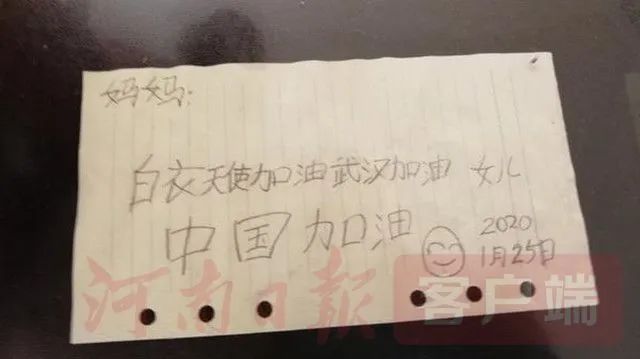 妈妈:
白衣天使加油武汉加油 女儿
中国加油
2020
1月25日
河南日报 客户端